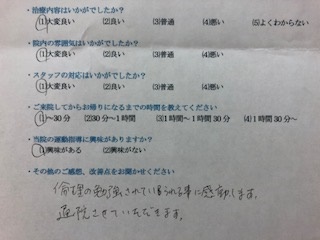 ・治療内容はいかがでしたか?
(1)大変良い (2)良い (3)普通 (4)悪い (5)よくわからない
・院内の雰囲気はいかがでしたか?
(1)大変良い (2)良い (3)普通 (4)悪い
・スタッフの対応はいかがでしたか?
(1)大変良い (2)良い (3)普通 (4)悪い
・ご来院してからお帰りになるまでの時間を教えてください
(1)~30分 (2)30分~1時間 (3)1時間~1時間30分 (4)1時間30分~
・当院の運動指導に興味がありますか?
(1)興味がある (2)興味がない
・その他のご感想、改善点をお聞かせください
倫理の勉強されていられる事に感動します。
通院させていただきます。